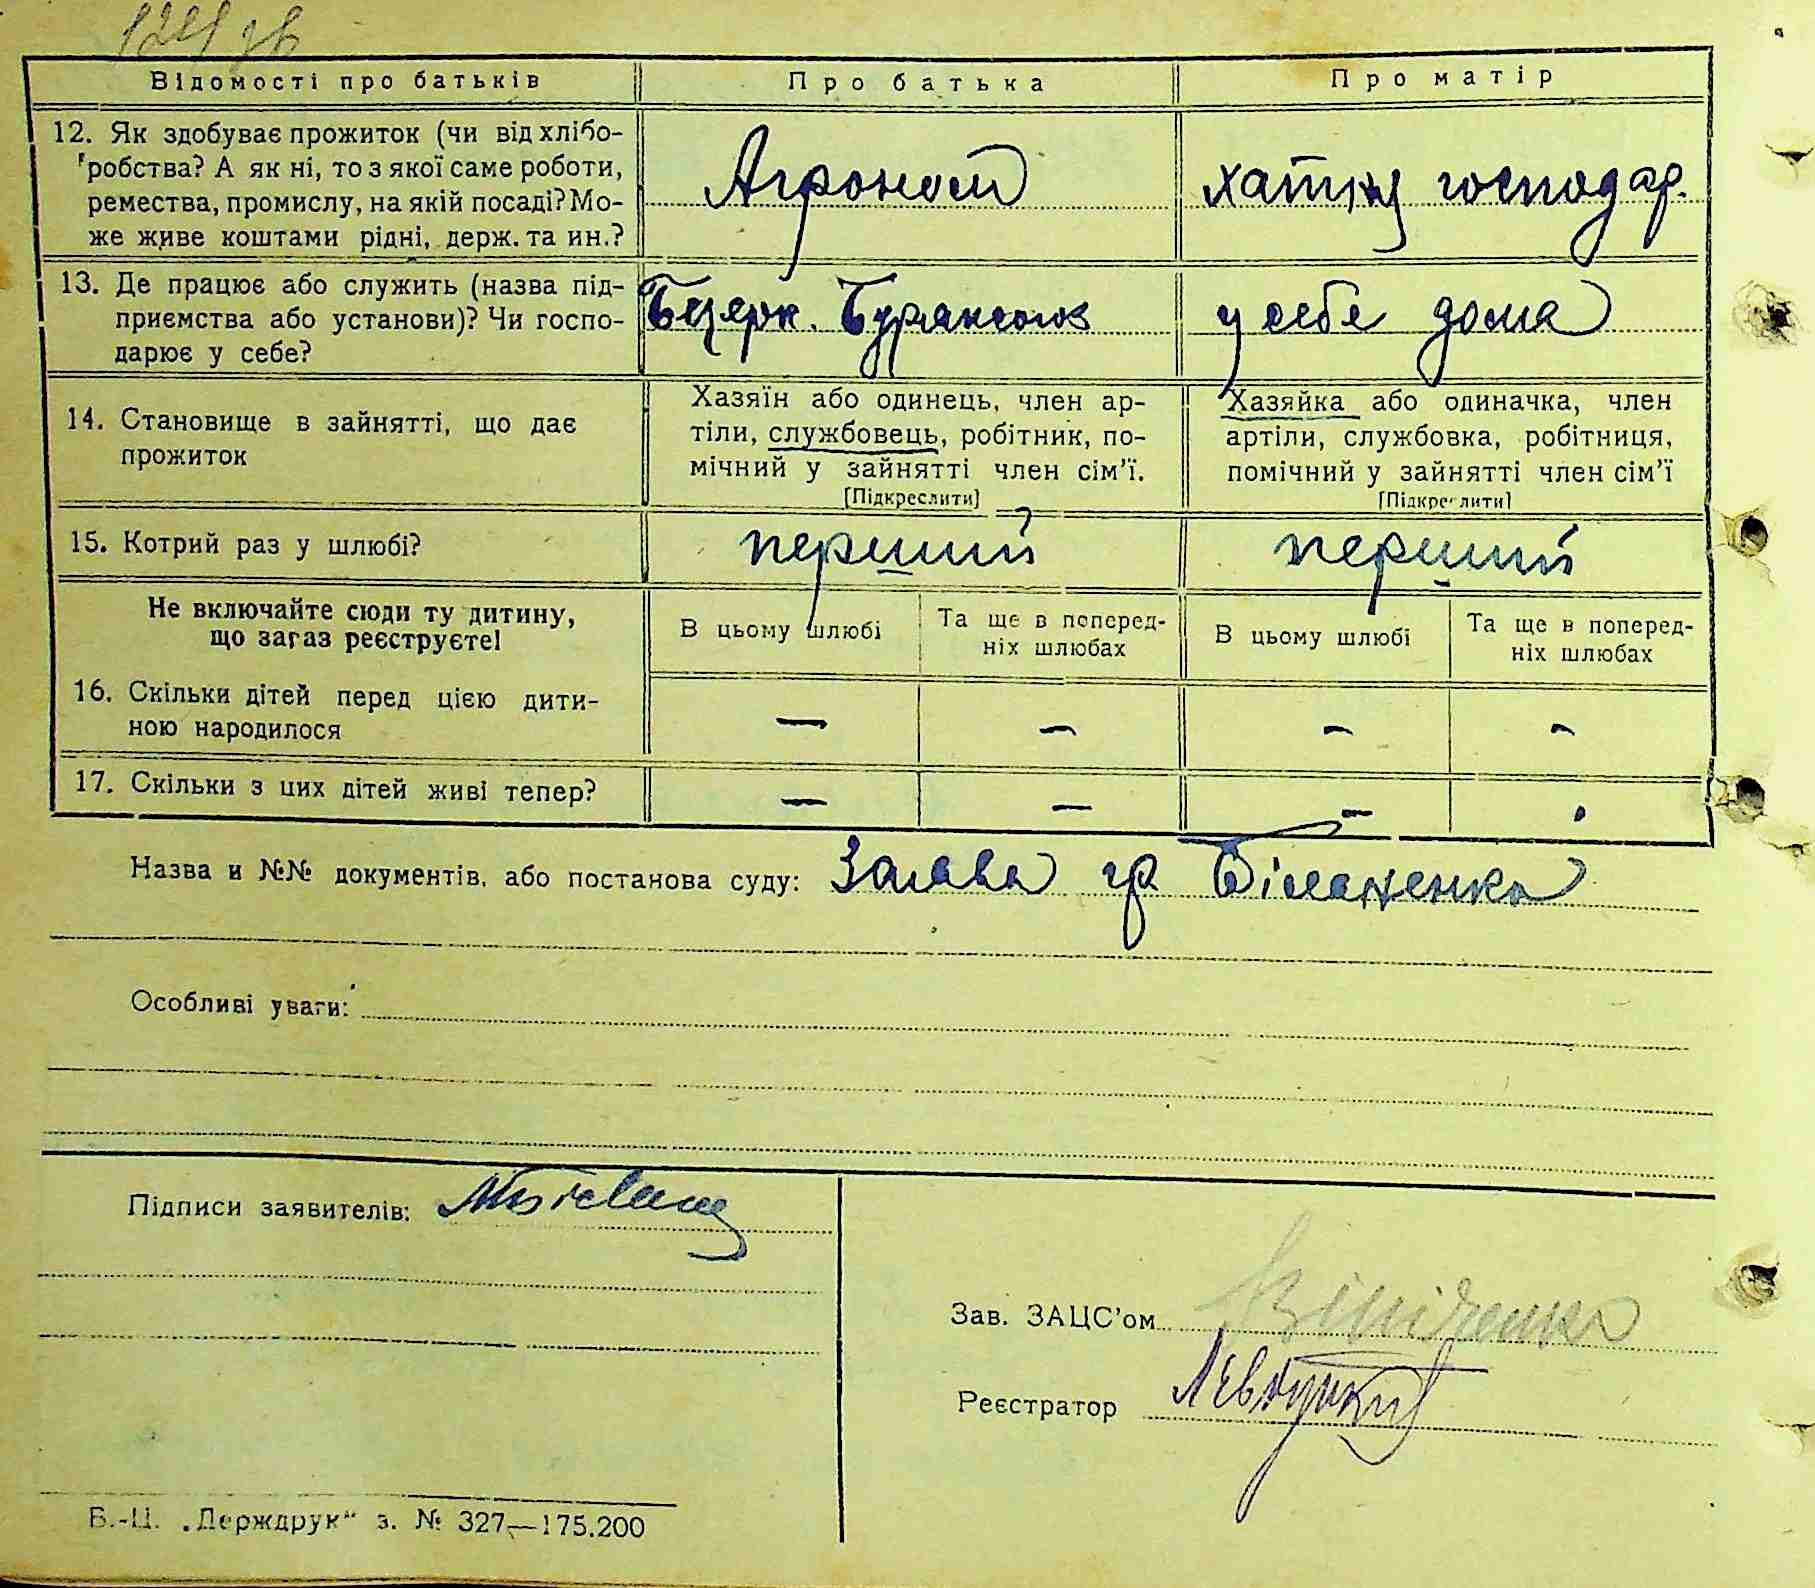 Відомості про батьків
Про батька
Про матір
12. Як здобуває прожиток (чи від хлібо-
робства? А як ні, то з якої саме роботи,
ремества, промислу, на якій посаді? Мо-
же живе коштами рідні, держ. та ин.?
Агроном
хатня господар.
13. Де працює або служить (назва під-
приємства або установи)? Чи госпо-
дарює у себе?
Бурякоюз
у себе дома
14. Становище в зайнятті, що дає
прожиток
Хазяїн або одинець, член ар-
тіли, службовець, робітник, по-
мічний у зайнятті член сім'ї.
[Підкреслити]
Хазяйка або одиначка, член
артіли, службовка, робітниця,
помічний у зайнятті член сім'ї
[Підкреслити]
15. Котрий раз у шлюбі?
перший
перший
Не включайте сюди ту дитину,
що зараз реєструєте!
В цьому шлюбі
Та ще в поперед-
ніх шлюбах
В цьому шлюбі
Та ще в поперед-
ніх шлюбах
16. Скільки дітей перед цією дити-
ною народилося
— — — —
17. Скільки з цих дітей живі тепер?
— — —
Назва и №№ документів, або постанова суду: Заява гр
Особливі уваги:
Підписи заявителів:
Зав. ЗАЦС'ом
Реєстратор
Б.-Ц. „Держдрук" з. № 327—175.200